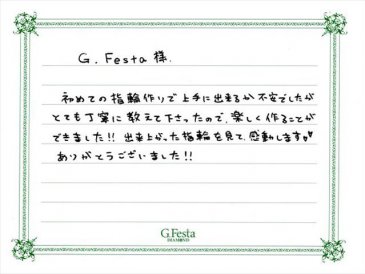 G. Festa 様.
初めての指輪作りで上手に出来るか不安でしたが
とても丁寧に教えて下さったので、楽しく作ることが
できました!! 出来上がった指輪を見て、感動します♡
ありがとうございました!!
G.Festa
DIAMOND